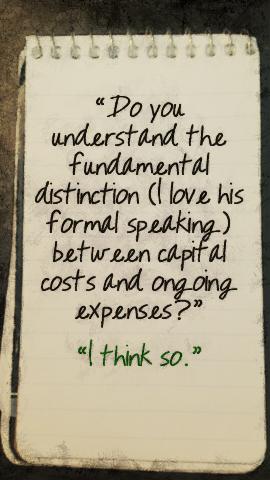 “Do you
understand the
fundamental
distinction (I love his
formal speaking)
between capital
costs and ongoing
expenses?”
“I think so.”